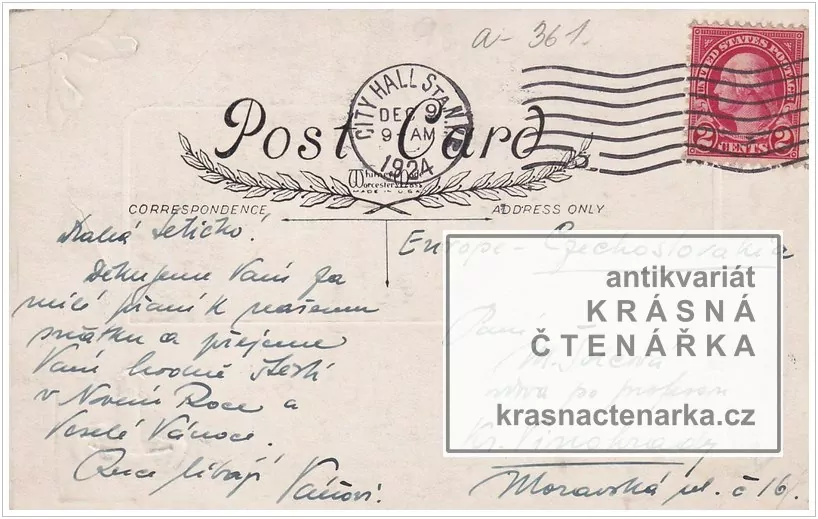 a-361.
UNITED STATES POSTAGE
2 CENTS 2
CITY HALL STA. N.Y.
DEC 9
9 AM
1924
Post Card
Whitney Made
Worcester, Mass
MADE IN U.S.A.
CORRESPONDENCE
ADDRESS ONLY
Drahá tetičko!
Děkujeme Vám za
milé přání k našemu
sňatku a přejeme
Vám hodně štěstí
v Novém Roce a
Veselé Vánoce.
Ruce líbají
Europe - Czechoslovakia
Paní
M.
vdova po profesoru
Kr. Vinohrady
Moravská ul. č 16.
antikvariát
KRÁSNÁ
ČTENÁŘKA
krasnactenarka.cz